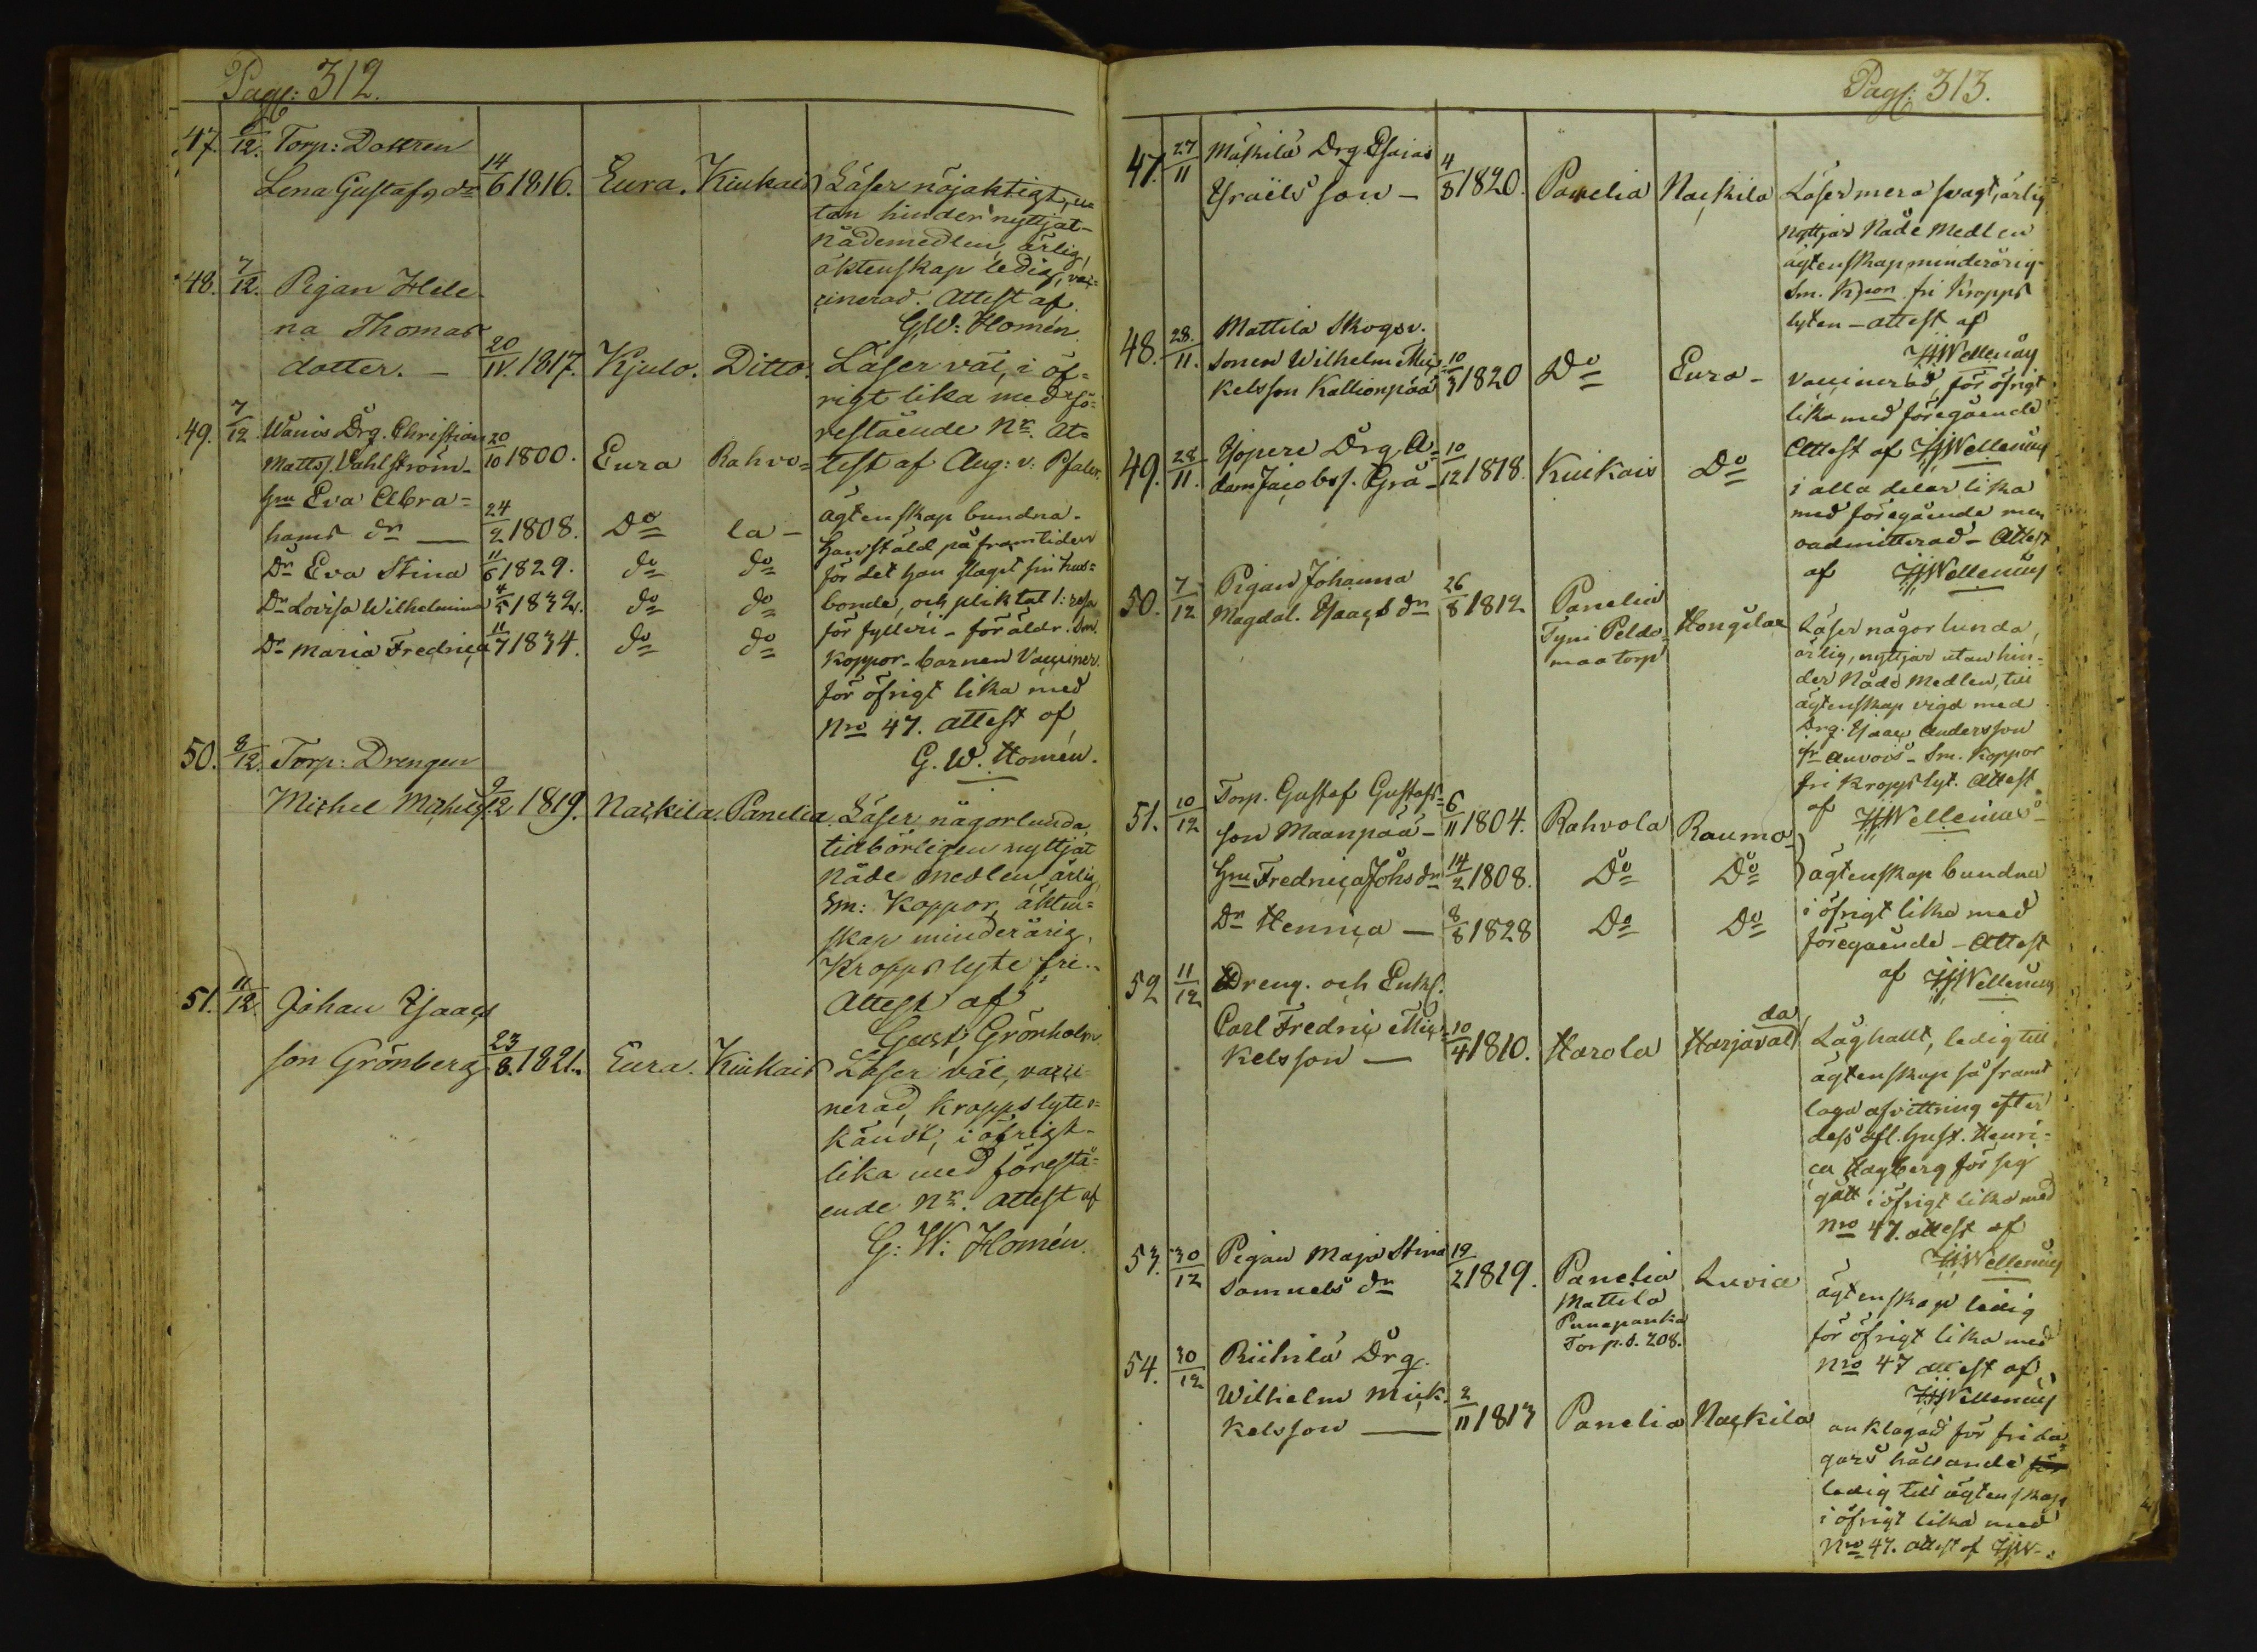 Pag: 312.
47. 6/12. Torp: Dottren
Lena Gustafs dr 14/6 1816. Eura. Kiukais Läser nöjaktigt, u=
tan hinder nyttjat
Nådemedlen, ärlig,
äktenskap ledig, vac=
cinerad. Attest af
G.W: Homén.
48. 7/12. Pigan Hele
na Thomas
dotter. — 20/IV. 1817. Kjulo. Ditto. Läser väl, i öf=
rigt lika med fö=
restående Nr. At=
test af Aug: v: Pfaler.
49. 7/12 Wänis Drg. Christian 20
Matts. Vahlström 10 1800. Eura Rahvo=
hu Eva Abra=
hams dr — 24/2 1808. Do la —
Dr Eva Stina 11/6 1829. do do
Dr Lovisa Wilhelmina 4/5 1832. do do
Dr Maria Fredrica 11/7 1834. do do
ägtenskap bundna.
Han stäld på framtiden
för det han slagit sin hus=
bonde, och pliktat 1: resa
för fylleri - föräldr. Sm.
Koppor - barnen Vacciner.
för öfrigt lika med
Nro 47. attest af
G. W. Homén.
50. 8/12. Torp: Drengen
Michel Michels. 9/12 1819. Nackila. Panelia. Läser någorlunda,
tillbörligen nyttjat
Nåde medlen, ärlig,
Sm: Koppor, äkten=
skap minderårig,
Kroppslyte fri.
Attest af
Gust. Grönholm.
51. 11/12. Johan Isaacs
son Grönberg 23/8. 1821. Eura. Kiukais Läser väl, vacci=
nerad, Kroppslyte o=
känd, i öfrigt
lika med förestå=
ende Nr. Attest af
G: W: Homén.
Pag: 313.
47. 27/11 Mäkilä Drg. Esaias
Israëls son — 4/8 1820. Panelia Nackila Läser mera svagt, ärlig
nyttjar Nåde Medlen
ägtenskap minderårig
Sm. Kppor fri Kropps
lyten - attest af
JJWellenius
48. 28/11. Mattila Skogsv.
sonen Wilhelm Mic
kelsson Kallionpää 10/3 1820 Do Eura — Vaccinerad, för öfrigt
lika med föregående
Attest af JJWellenius
49. 28/11. Yöpere Drg. A=
dam Jacobss. Grå — 10/12 1818. Kiukais Do
i alla delar lika
med föregående men
oadmitterad - Attest
af JJWellenius
50. 7/12 Pigan Johanna
Magdal. Isaacs dr 26/8 1812 Panelia
Tyni Peldo
maa torp
Hongilax Läser någorlunda,
ärlig, nyttjar utan hin=
der Nåde Medlen, till
ägtenskap vigd med
Drg. Isaac Andersson
fr Auvois - Sm. Koppor
fri Kroppslyt. Attest
af JJWellenius
51. 10/12 Torp. Gustaf Gustafs=
son Maanpää — 6/11 1804. Rahvola Raumo
Hu Fredrica Johs dr 14/2 1808. Do Do ägtenskap bundna
Dr Henrica — 8/8 1828 Do Do i öfrigt lika med
föregående - Attest
af JJWellenius
52 11/12 Dreng. och Enkl.
Carl Fredric Mic
kelsson — 10/4 1810. Harola Harjaval
da
Läghallt, ledig till
ägtenskap så framt
laga afvittring efter
dess afl. hust. Henri=
ca Hagberg för sig
gått i öfrigt lika med
Nro 47. attest af
JJWellenius
53. 30/12 Pigan Maja Stina
Samuels dr 19/2 1819. Panelia
Mattila
Punapanka
Torp. s. 208.
Luvia ägtenskap ledig
för öfrigt lika med
Nro 47 attest af
JJWellenius
54. 30/12 Riihilä Drg.
Wilhelm Mick
kelsson — 2/11 1813 Panelia Nackila anklagad för fri da
gars hållande för
ledig till ägtenskap
i öfrigt lika med
Nro 47. attest af JJW.